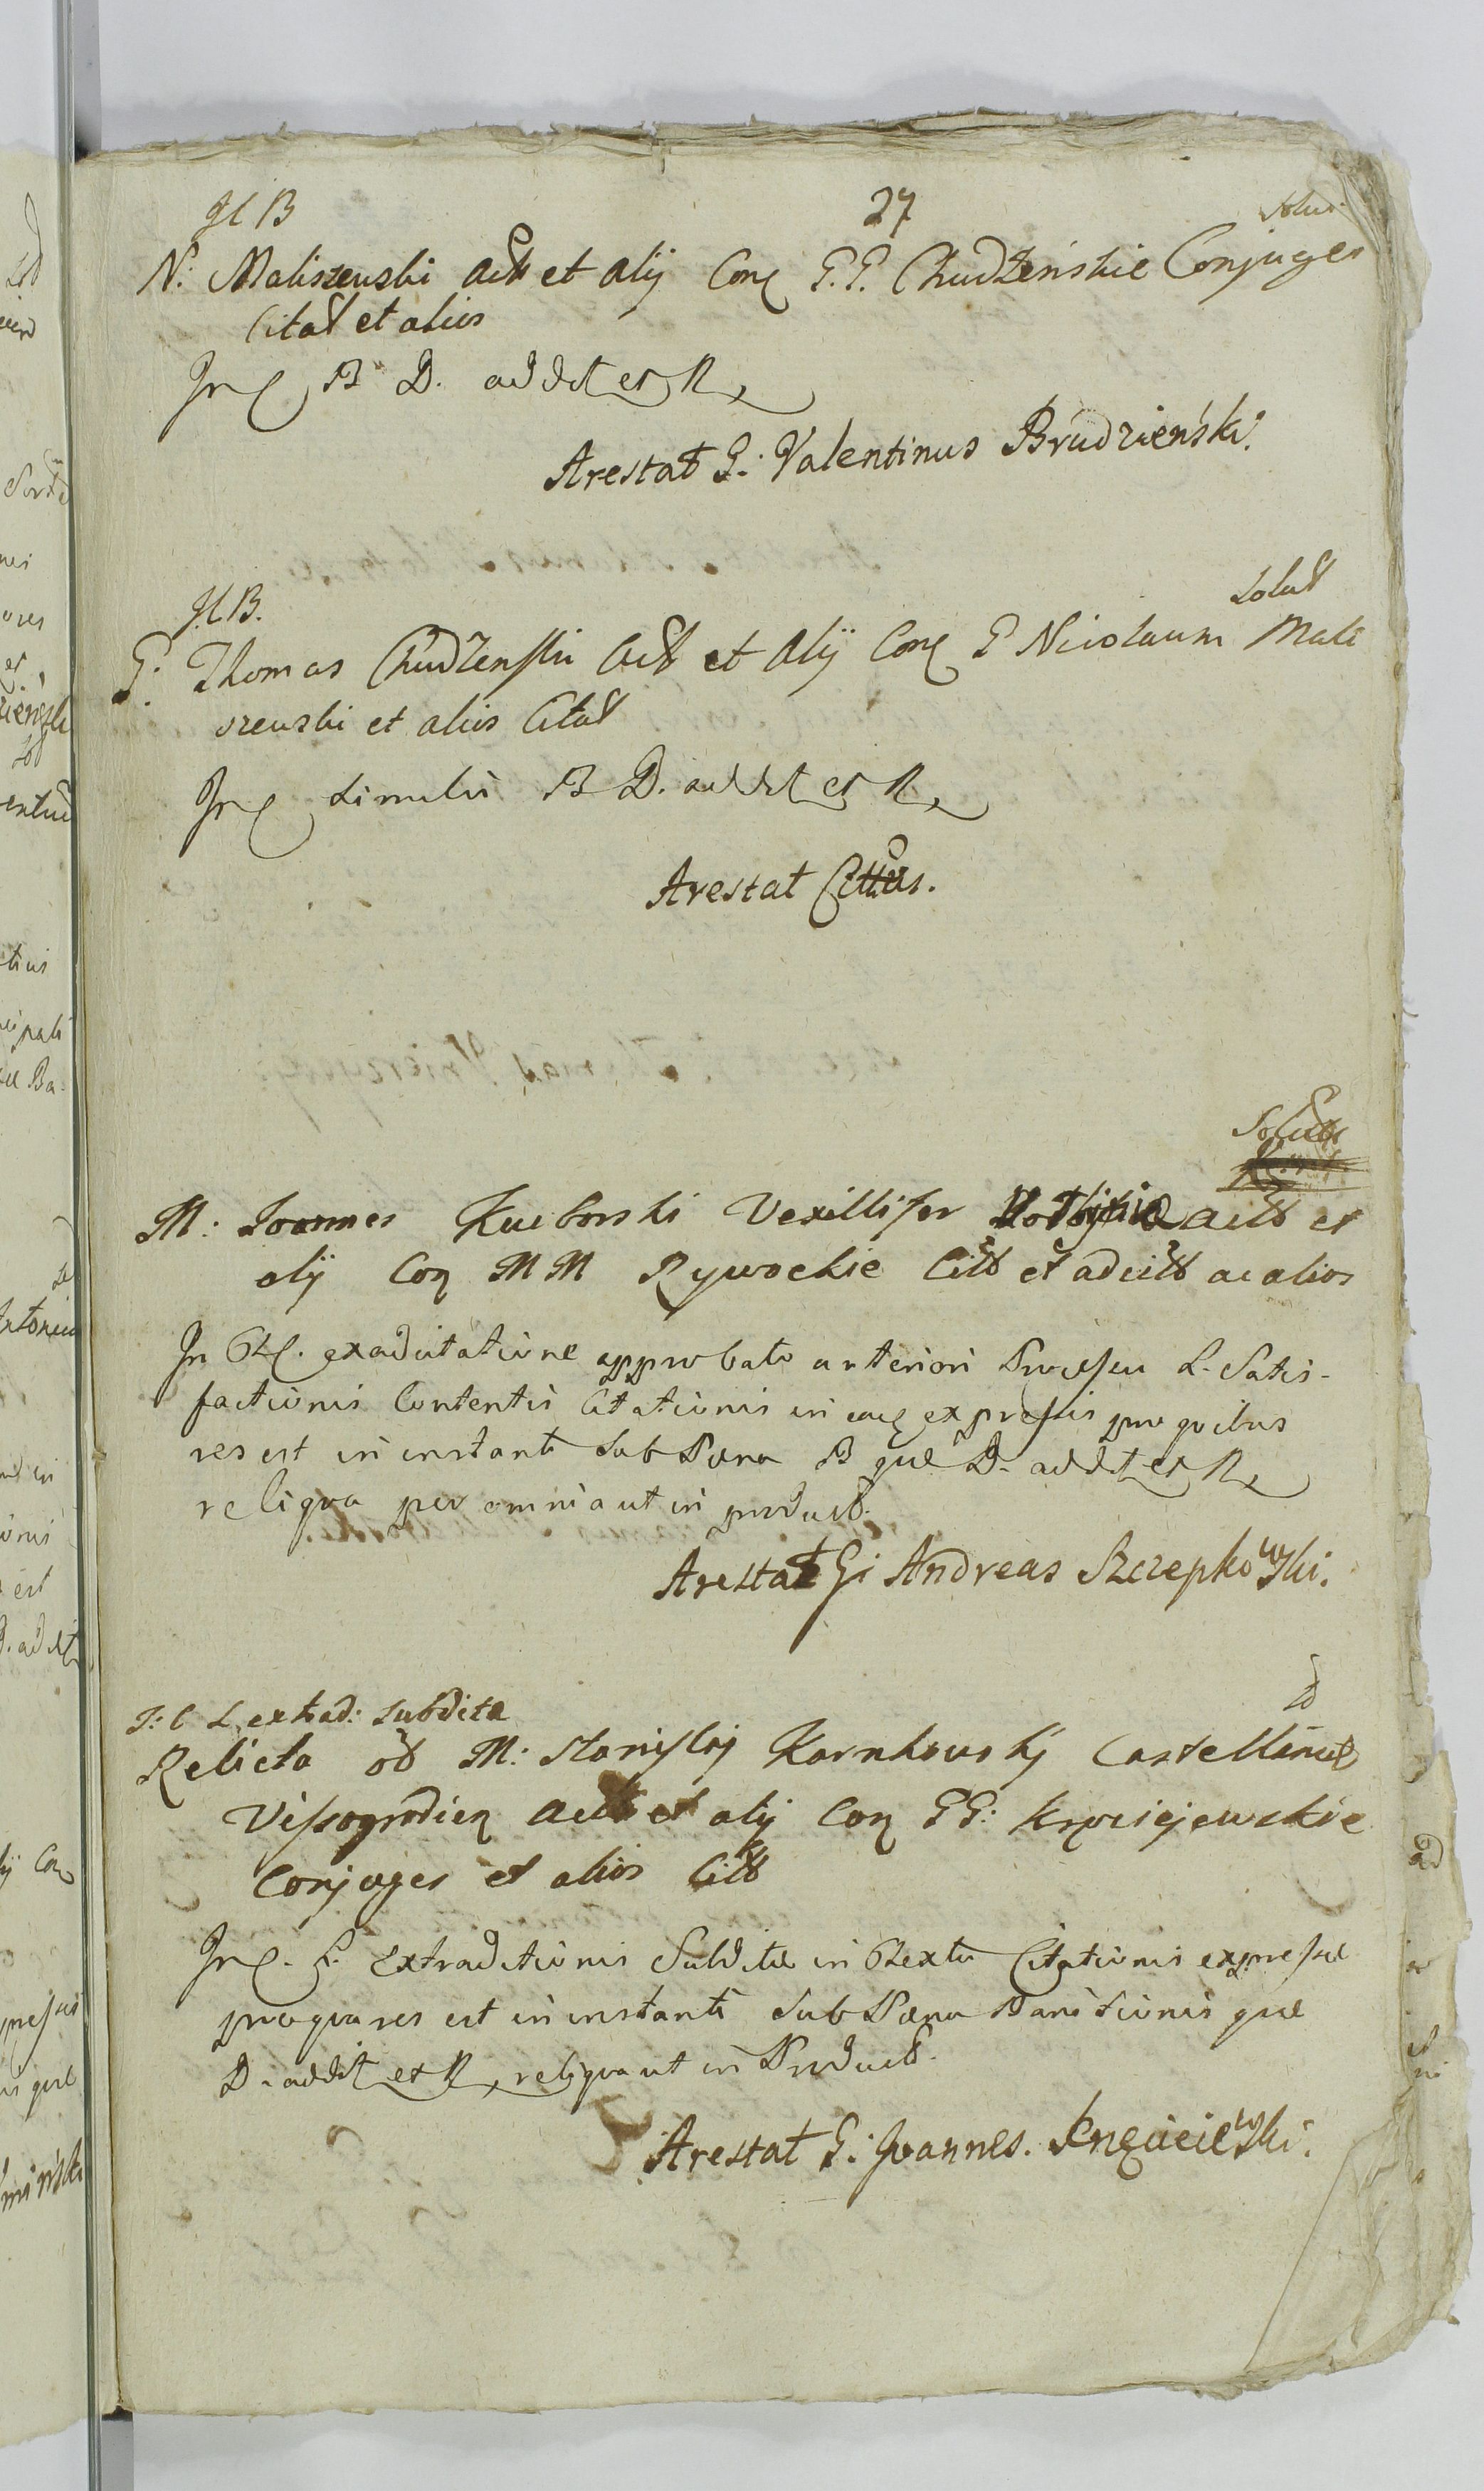 Jl B
27
Solut
N: Maliszewski act et alij Con G.G. Chudzeńskie Conjuges
Citat et alios
In C B D. addit et R
Arestat G: Valentinus Brudzieński.
Jl B.
Solut
G: Thomas Chudzenski Act et Alij Con G Nicolaum Mali
szewski et alios Citat
In C simili B D. addit et R
Arestat Cittus.
Solut
M: Joannes Kuczborski Vexillifer act et
alij Con M M Rywockie Citt et adcitt ac alios
In exadcitatione approbato anteriori Processu L. Satis-
factionis Contentis Citationis in eaq expressis pro quibus
res est in instanti Sub Pæna B quæ D. addit et R
reliqua per omnia ut in product.
Arestat G: Andreas Szczepkowski.
J: C L extrad: subditæ
Relicta M: Stanislaj Karnkowskj Castellani
Vissogrodien act et alij Con GG:
Conjuges et alios Citt
In C. L. Extraditionis Subditæ in Contextu Citationis expressæ
pro qua res est in instanti Sub Pæna Banitionis quæ
D. addit et R, reliqua ut in Product.
Arestat G: Joannes.